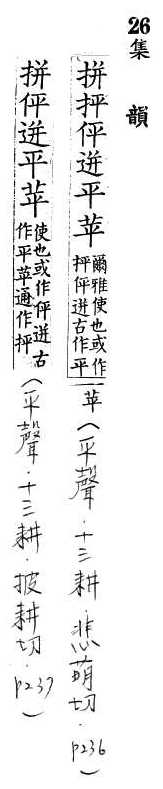 26集韻
拼抨伻迸平苹爾雅使也或作
抨伻迸古作平
苹（平聲．十三耕．悲萌切．p236）
拼伻迸平苹使也或作伻迸古
作平苹通作抨
（平聲．十三耕．披耕切．p237）